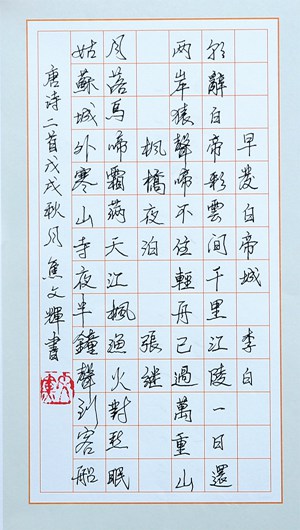 早發白帝城 李白
朝辭白帝彩雲間千里江陵一日還
兩岸猿聲啼不住輕舟已過萬重山
楓橋夜泊 張繼
月落烏啼霜滿天江楓漁火對愁眠
姑蘇城外寒山寺夜半鐘聲到客船
唐詩二首戊戌秋月焦文輝書